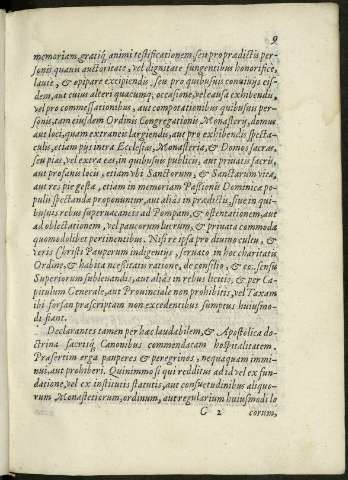 9
memoriam, gratiq; animi testificationem, seu pro prædictis per-
sonis quauis auctoritate, vel dignitate fungentibus honorificè,
lautè, & opiparè excipiendis, seu pro quibusuis conuiuijs eis-
dem, aut cuius alteri quacumq; occasione, vel causa exhibendis,
vel pro commessationibus, aut compotationibus quibusuis per-
sonis, tam eiusdem Ordinis Congregationis Monasterij, domus
aut loci, quam extraneis largiendis, aut pro exhibendis specta-
culis, etiam pijs intra Ecclesias, Monasteria, & Domos sacras,
seu pias, vel extra eas, in quibusuis publicis, aut priuatis sacris,
aut profanis locis, etiam vbi Sanctorum, & Sanctarum vitæ,
aut res piè gestæ, etiam in memoriam Passionis Dominicæ po-
pulis spectanda proponuntur, aut aliàs in prædictis, siue in qui-
busuis rebus superuacaneis ad Pompam, & ostentationem, aut
ad oblectationem, vel paucorum lucrum, & priuata commoda
quomodolibet pertinentibus. Nisi re ipsa pro diuino cultu, &
veris Christi Pauperum indigentijs, seruato in hoc charitatis
Ordine, & habita necessitatis ratione, de consilio, & consensu
Superiorum subleuandis, aut aliàs in rebus licitis, & per Ca-
pitulum Generale, aut Prouinciale non prohibitis, vel Taxam
ibi forsan præscriptam non excedentibus sumptus huiusmo-
di fiant.
Declarantes tamen per hæc laudabilem, & Apostolica do-
ctrina sacrisq; Canonibus commendatam hospitalitatem.
Præsertim erga pauperes & peregrinos, nequaquam immi-
nui, aut prohiberi. Quinimmo si qui redditus ad id vel ex fun-
datione, vel ex institutis statutis, aut consuetudinibus aliquo-
rum Monasteriorum, ordinum, aut regularium huiusmodi lo
C 2 corum,